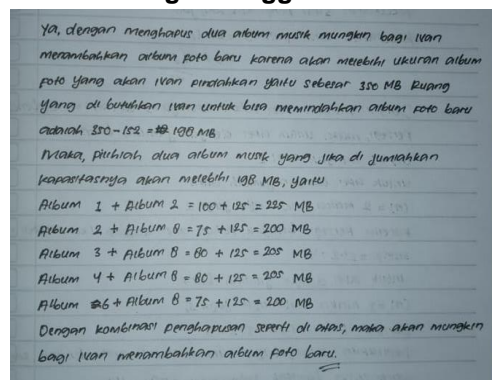 Ya, dengan menghapus dua album musik mungkin bagi Ivan
menambahkan album foto baru karena akan melebihi ukuran album
foto yang akan Ivan pindahkan yaitu sebesar 350 MB Ruang
yang di butuhkan Ivan untuk bisa memindahkan album foto baru
adalah 350-152 = 198 MB
Maka, pilihlah dua album musik yang jika di jumlahkan
kapasitasnya akan melebihi 198 MB, yaitu
Album 1 + Album 2 = 100 + 125 = 225 MB
Album 2 + Album 8 = 75 + 125 = 200 MB
Album 3 + Album 8 = 80 + 125 = 205 MB
Album 4 + Album 8 = 80 + 125 = 205 MB
Album 6 + Album 8 = 75 + 125 = 200 MB
Dengan kombinasi penghapusan seperti di atas, maka akan mungkin
bagi Ivan menambahkan album foto baru.